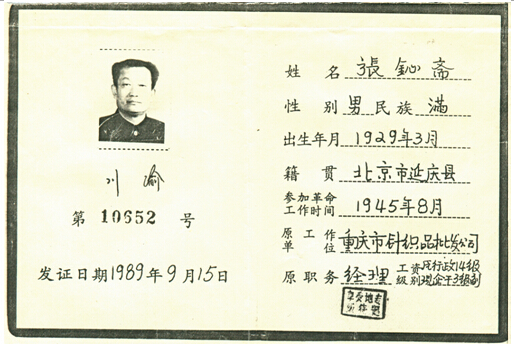 川渝
第 10652 号
发证日期1989年9月15日
姓名 張鈊斋
性别 男 民族 满
出生年月 1929年3月
籍贯 北京市延庆县
参加革命工作时间 1945年8月
原工作单位 重庆市针织品批发公司
原职务 经理 工资级别 民行政14级 现企干3级副